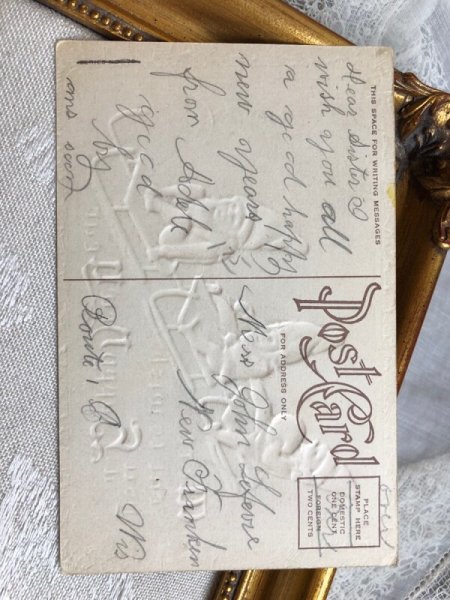 THIS SPACE FOR WRITING MESSAGES
Dear Sister I
wish you all
a good happy
new years
from Adole
God
by
ans soon
Post Card
FOR ADDRESS ONLY
PLACE
STAMP HERE
DOMESTIC
ONE CENT
FOREIGN
TWO CENTS
Mrs John Lefevre
New Franken
Route 1
Wis